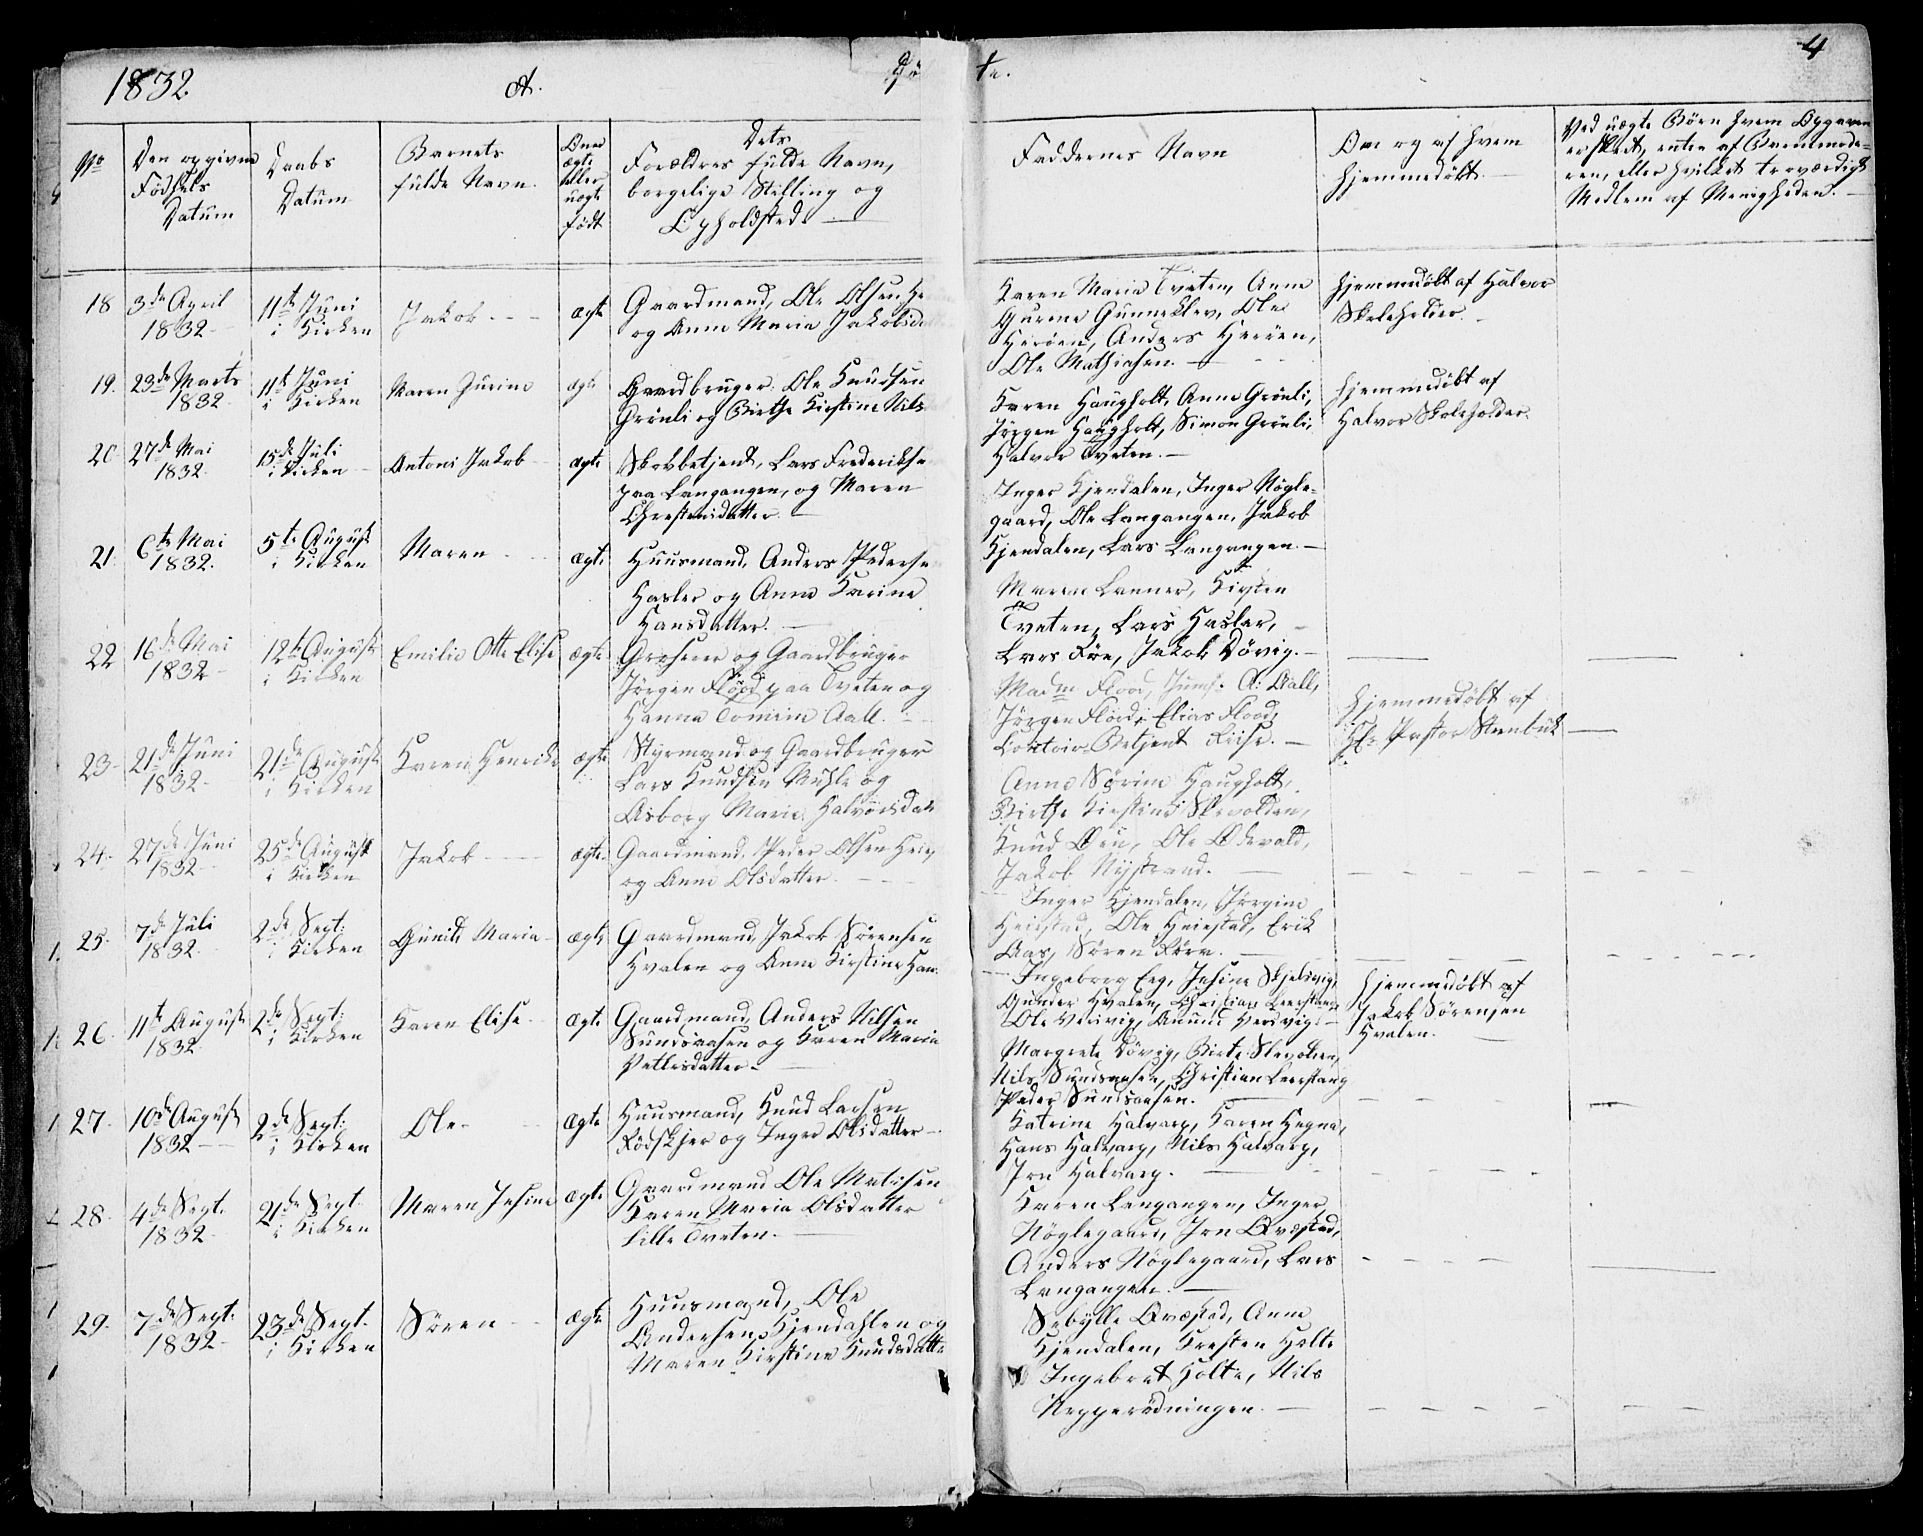 1832. A. Fö te. 4
No
Den opgivne
Födsels
Datum
Daabs
Datum
Barnets
fulde Navn.
Om
ægte
eller
uægte
født
Dets
Forældres fulde Navn,
borgelige Stilling og
Opholdsted. —
Faddernes Navn
Om og af hvem
hjemmedøbt. —
Ved uægte Börn hvem Opgaven
er skedt, enten af Barnemode-
ren, eller hvilket troværdigt
Medlem af Menigheden. —
18 3de April
1832 —
11te Juni
i Kirken
Jakob — —
ægte
Gaardmand, Ole Olsen He
og Anne Maria Jakobsda
Karen Maria Tveten, Anne
Gurene Gunneklev, Ole
Heröen, Anders Heröen,
Ole Mathisen. —
hjemmedøbt af Halvor
Skoleholder. —
19. 23de Marts
1832
11te Juni
i Kirken
Maren Gurine
ægte
Gaardbruger Ole Knudsen
Grönli og Birthe Kirstine Nils
Karen Haugholt, Anne Grönli,
Jörgen Haugholt, Simon Grönli,
Halvor Tveten. —
hjemmedöbt af
Halvor Skoleholder.
20 27de Mai
1832
15de Juli
i Kirken —
Antoni Jakob
ægte
Skovbetjent, Lars Frederikse
paa Langangen, og Maren
Christensdatter. —
Inger Kjendalen, Inger Nøgle-
gaard, Ole Langangen, Jakob
Kjendalen, Lars Langangen. —
21. 6te Mai
1832.
5te August
i Kirken
Maren
ægte
Huusmand, Anders Pederse
Hasler og Anne Karine
Hansdatter. —
Maren Lanner, Kirsten
Tveten, Lars Hasler,
Lars Röe, Jakob Dövig. —
22 16de Mai
1832 —
12te August
i Kirken
Emilie Otte Elise
ægte
og Gaardbruger
Jörgen Flood paa Tveten og
Hanna Aall. —
Madm Flood, Jomf: A: Aall,
Jörgen Flood, Elias Flood,
Contoir Betjent Riise. —
hjemmedøbt af
Hr. Pastor Steenbuk
23. 21de Juni
1832 —
21de August
i Kirken
Karen Henrikke
ægte
Styrmand og Gaardbruger
Lars Knudsen Mühle og
Asborg Marie Halvorsdat
Anne Sørine Haugholt,
Birthe Kirstine Skavolden,
Knud Öen, Ole Ödevald,
Jakob Nystrand. —
24. 27de Juni
1832
25de August
i Kirken
Jakob —
ægte
Gaardmand, Peder Olsen Heie,
og Anne Olsdatter. —
Inger Kjendalen, Jörgine
Heiestad, Ole Heiestad, Erik
Aas, Sören Rörn. —
25. 7de Juli
1832.
2de Sept:
i Kirken
Gunild Maria
ægte
Gaardmand, Jakob Sörensen
Hvalen og Anne Kirstine Han
Ingeborg Eeg, Jesine Skjelsvig,
Gunder Hvalen, Christian Leerstang
Ole Versvig, Amund Versvig. —
hjemmedøbt af
Jakob Sörensen
Hvalen.
26. 11te August
1832
2de Sept:
i Kirken
Karen Elise —
ægte
Gaardmand, Anders Nilsen
Sundsaasen og Karen Maria
Pettersdatter. —
Margrete Dövig, Birte Slevolden,
Nils Sundsaasen, Christian Leerstang
Peder Sundsaasen.
27. 10de August
1832 —
2de Sept:
i Kirken
Ole —
ægte
Huusmand, Knud Larsen
Rödskjer og Inger Olsdatter —
Katrine Halvarp, Karen Hegna,
Hans Halvarp, Nils Halvarp,
Jon Halvarp.
28. 4de Sept.
1832 —
21de Sept.
i Kirken
Maren Jesine
ægte
Gaardmand Ole Matisen
Karen Maria Olsdatter
Lille Tveten. —
Karen Langangen, Inger
Nöglegaard, Jon Qvæstad,
Anders Nöglegaard, Lars
Langangen. —
29. 7de Sept:
1832 —
23de Sept.
i Kirken
Sören —
ægte
Huusmand, Ole
Andersen Kjendahlen og
Maren Kirstine Knudsdatte
Sebylle Qvæstad, Anne
Kjendalen, Kresten Holte
Ingebret Holte, Nils
Nepperödningen. —